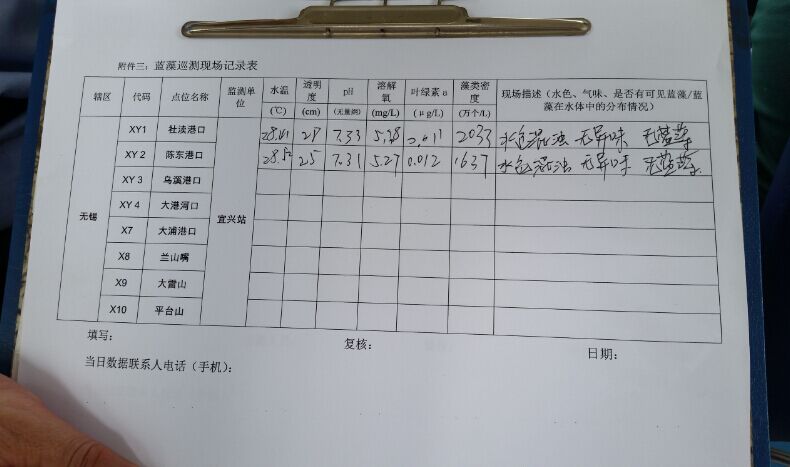 附件三：蓝藻巡测现场记录表
辖区 代码 点位名称 监测单位 水温(℃) 透明度(cm) pH(无量纲) 溶解氧(mg/L) 叶绿素a(μg/L) 藻类密度(万个/L) 现场描述（水色、气味、是否有可见蓝藻/蓝藻在水体中的分布情况）
无锡 宜兴站
XY1 社渎港口 28.61 27 7.33 5.38 0.011 2033 水色混浊 无异味 无蓝藻
XY 2 陈东港口 28.52 25 7.31 5.27 0.012 1637 水色混浊 无异味 无蓝藻
XY 3 乌溪港口
XY 4 大港河口
X7 大浦港口
X8 兰山嘴
X9 大雷山
X10 平台山
填写： 复核： 日期：
当日数据联系人电话（手机）：